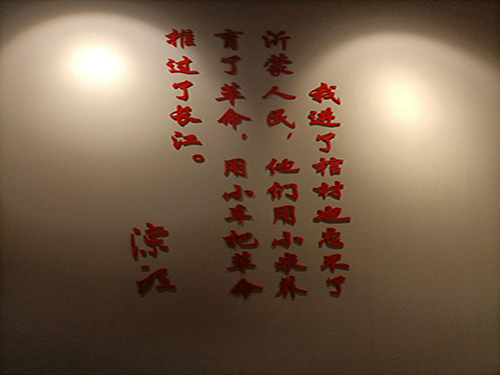 我进了棺材也忘不了
沂蒙人民，他们用小米养
育了革命，用小车把革命
推过了长江。